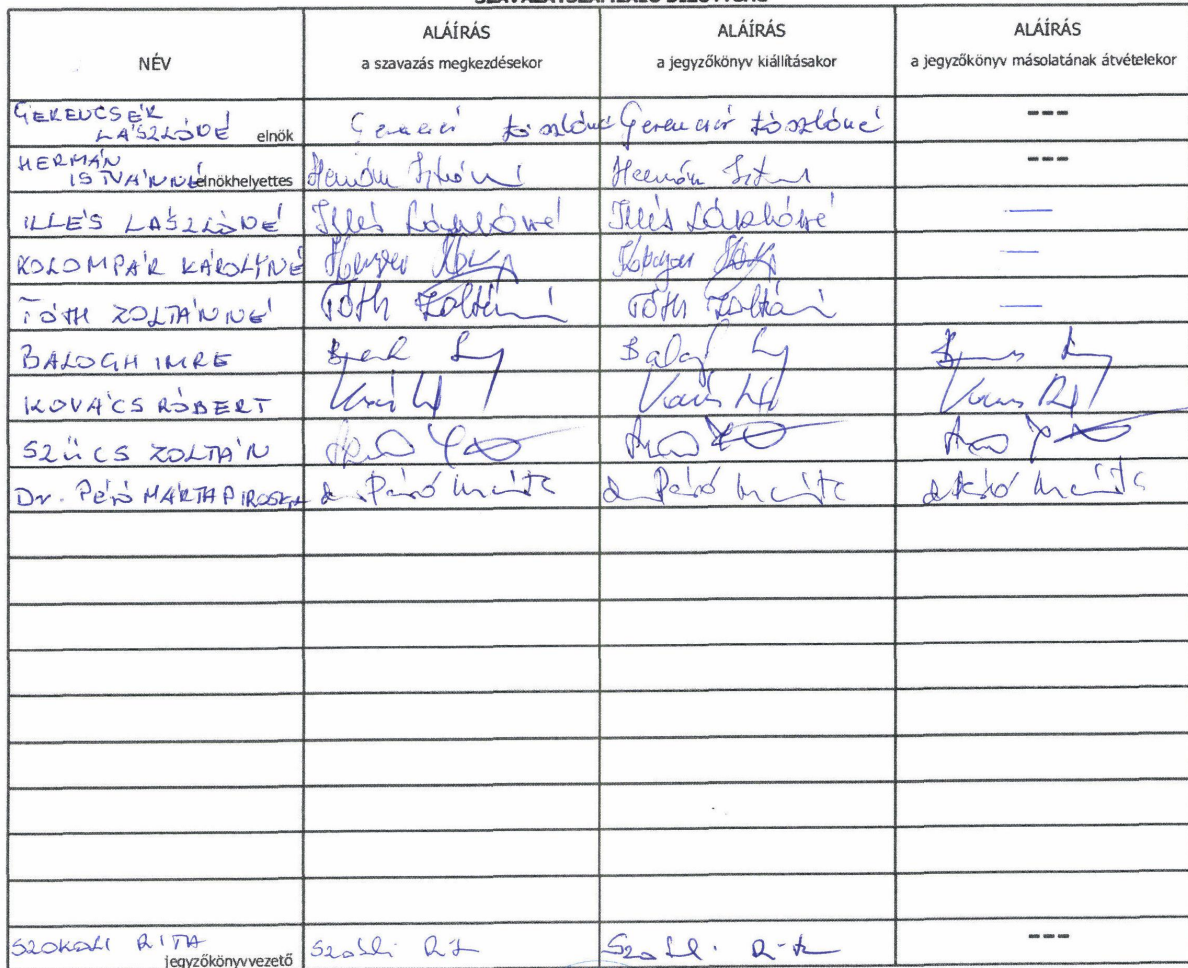 SZAVAZATSZÁMLÁLÓ BIZOTTSÁG
NÉV
ALÁÍRÁS
a szavazás megkezdésekor
ALÁÍRÁS
a jegyzőkönyv kiállításakor
ALÁÍRÁS
a jegyzőkönyv másolatának átvételekor
GERENCSÉR
LÁSZLÓNÉ elnök
Gerencsér Lászlóné
Gerencsér Lászlóné
---
HERMÁN
ISTVÁNNÉ elnökhelyettes
Hermán
Hermán
---
ILLÉS LÁSZLÓNÉ
Illés Lászlóné
Illés Lászlóné
—
KOLOMPÁR KÁROLYNÉ
—
TÓTH ZOLTÁNNÉ
Tóth Zoltánné
Tóth Zoltánné
—
BALOGH IMRE
KOVÁCS RÓBERT
SZŰCS ZOLTÁN
Dr. Péró MÁRTA PIROSKA
SZOKOLI RITA
jegyzőkönyvvezető
Szokoli Rita
Szokoli Rita
---